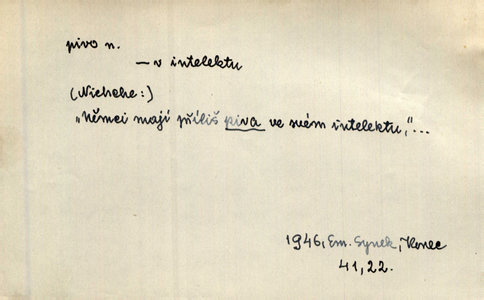 pivo n.
— v intelektu
(Nietzche:)
„Němci mají příliš piva ve svém intelektu,“...
1946, Em. Synek, Konec
41, 22.